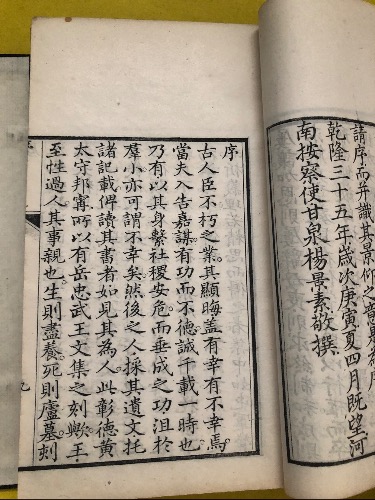 請序而并識其景仰之意景
乾隆三十五年歲次庚寅夏四月既望河
南按察使甘泉楊景素敬撰
序
古人臣不朽之業其顯晦蓋有幸有不幸焉
當夫入告嘉謀有功而不德誠千載一時也
乃有以其身繫社稷安危而垂成之功沮於
羣小亦可謂不幸矣然後之人採其遺文托
諸記載俾讀其書者如見其為人此彰德黃
太守邦寧所以有岳忠武王文集之刻歟王
至性過人其事親也生則盡養死則廬墓刻